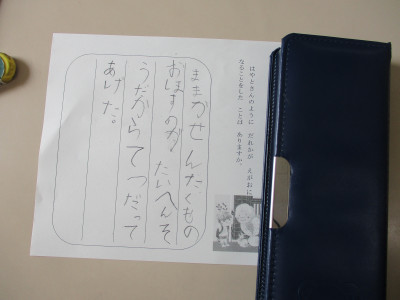 はやとさんのように だれかが えがおに
なることをした ことは ありますか。
ままがせんたくもの
おほすのが たいへんそ
うだからてつだって
あげた。